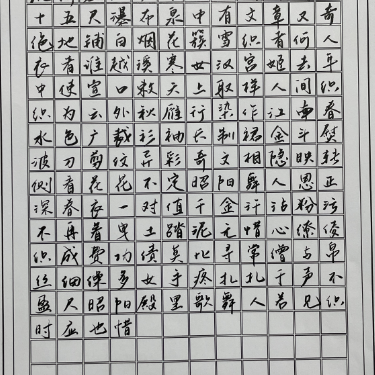 十五尺瀑布泉中有文章又奇
绝地铺白烟花簇雪织者何人
衣者谁越溪寒女汉宫姬去年
中使宣口敕天上取样人间织
织为云外秋雁行染作江南春
水色广裁衫袖长制裙金斗熨
波刀剪纹异彩奇文相隐映转
侧看花花不定昭阳舞人恩正
深春衣一对值千金汗沾粉污
不再着曳土踏泥无惜心缭绫
织成费功绩莫比寻常缯与帛
丝细缲多女手疼扎扎千声不
盈尺昭阳殿里歌舞人若见织
时应也惜